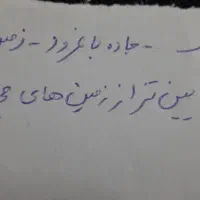 - جاده باغرود - زمین
پایین تر از زمین های